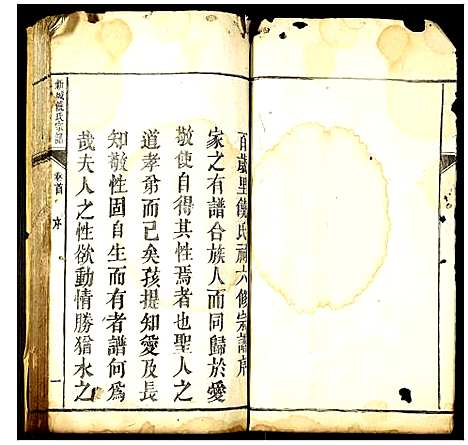 百歲里饒氏初六修宗譜序
家之有譜合族人而同歸於愛
敬使自得其性焉者也聖人之
道孝弟而已矣孩提知愛及長
知敬性固自生而有者譜何為
哉夫人之性欲動情勝猶水之
新城饒氏宗譜
卷首
序
一